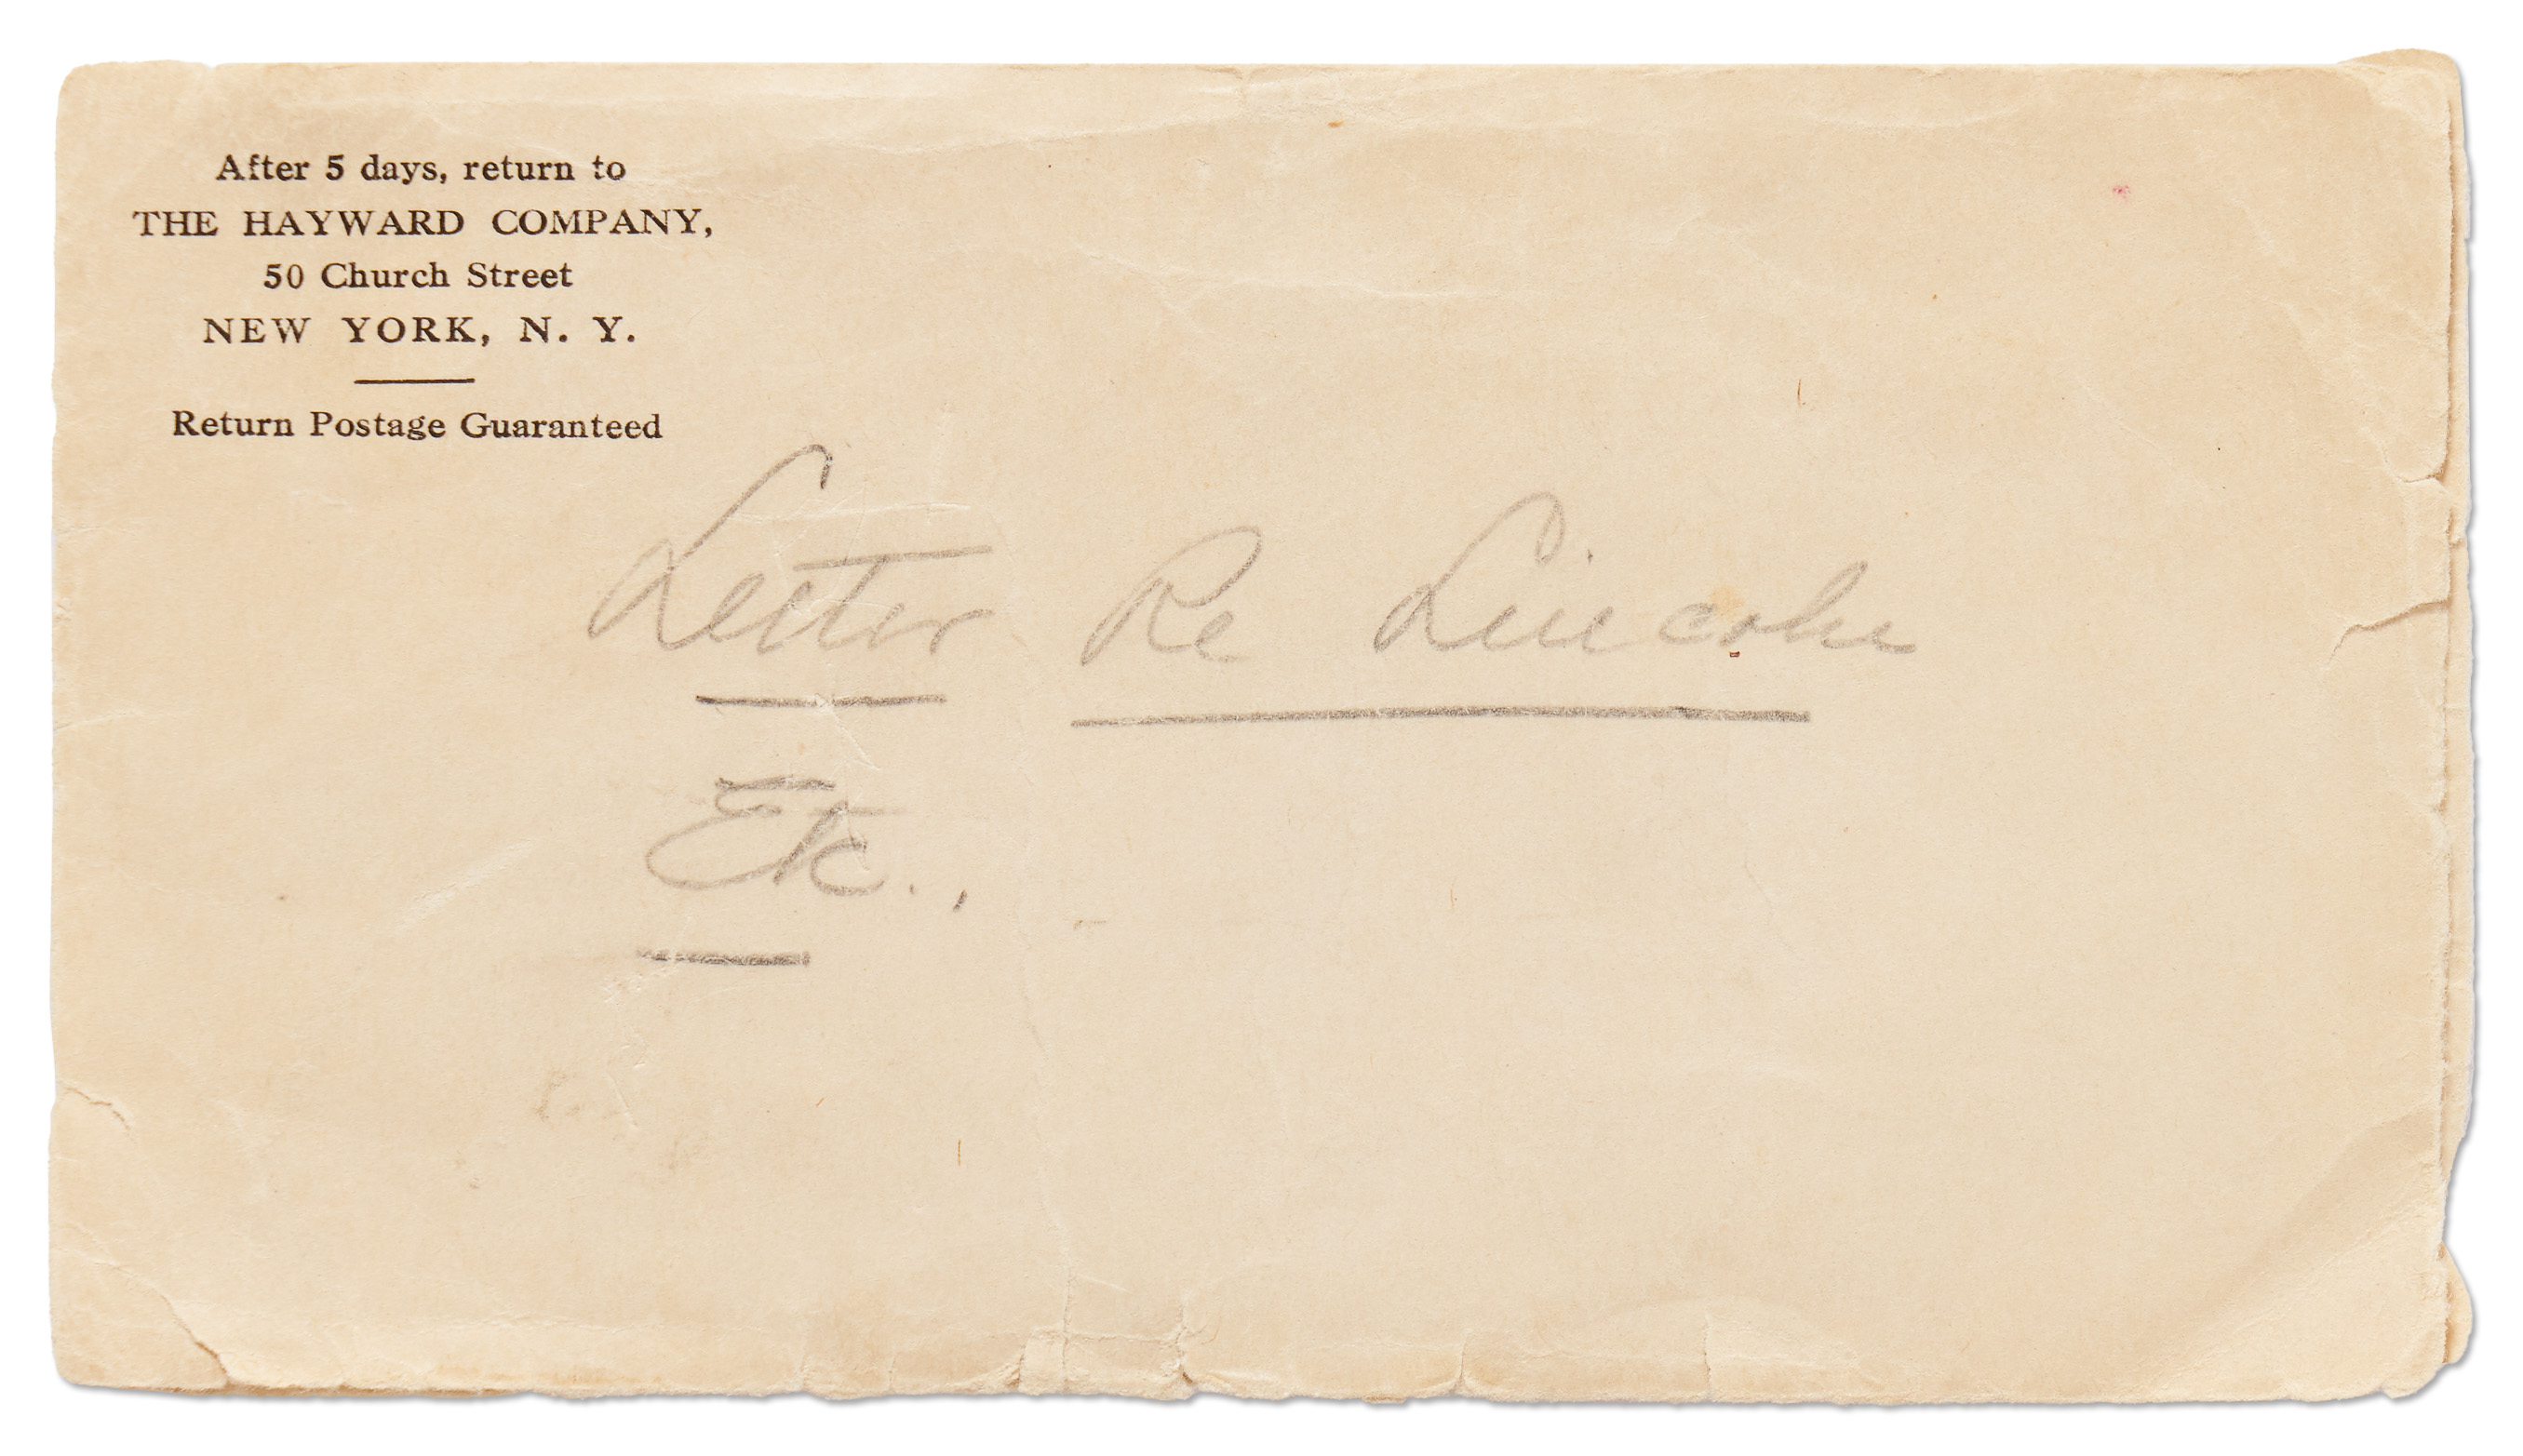 After 5 days, return to
THE HAYWARD COMPANY,
50 Church Street
NEW YORK, N. Y.
Return Postage Guaranteed
Letter Re Lincoln
Etc.,